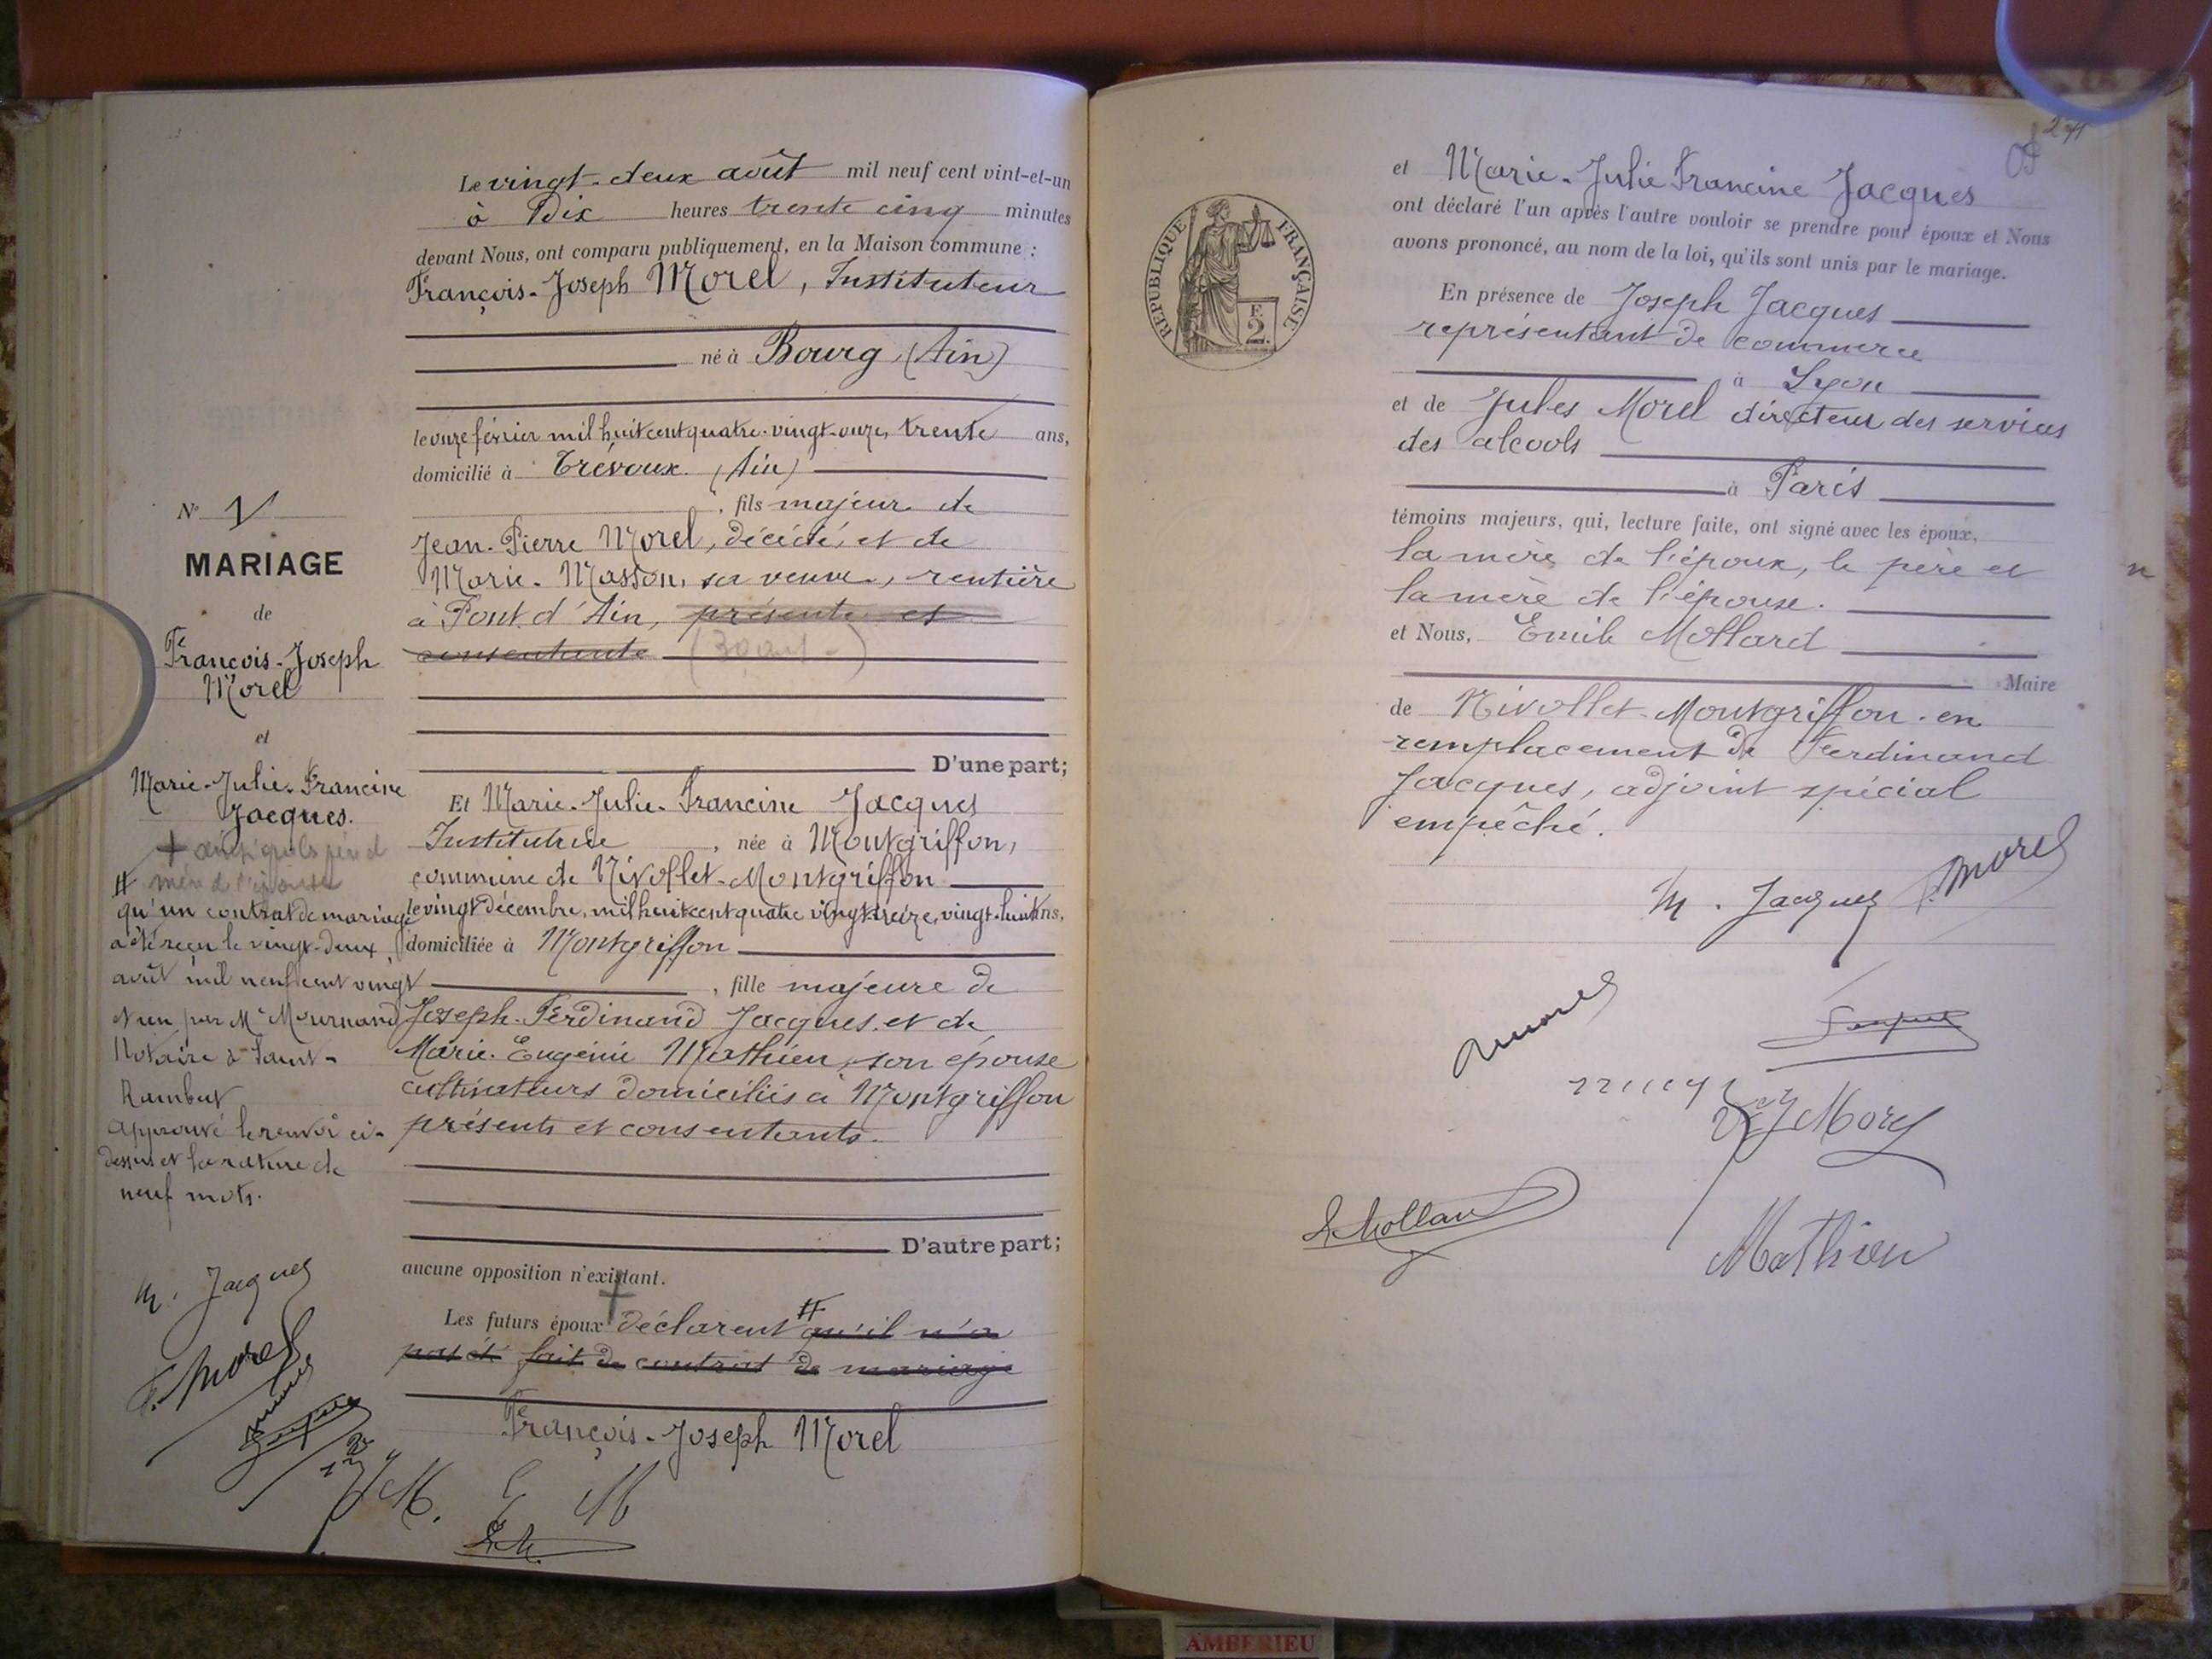 Le vingt-deux août mil neuf cent vint-et-un
à Dix heures trente cinq minutes
devant Nous, ont comparu publiquement, en la Maison commune :
François-Joseph Morel, Instituteur
né à Bourg (Ain)
le onze février mil huit cent quatre-vingt-onze, trente ans,
domicilié à Trévoux (Ain)
, fils majeur de
Jean-Pierre Morel, décédé, et de
Marie Masson, sa veuve, rentière
à Pont d'Ain, présente et
consentante (30 ans)
D'une part;
Et Marie-Julie-Francine Jacques
Institutrice, née à Montgriffon,
commune de Nivollet-Montgriffon
le vingt décembre, mil huit cent quatre vingt treize, vingt-huit ans,
domiciliée à Montgriffon
, fille majeure de
Joseph-Ferdinand Jacques et de
Marie-Eugénie Mathieu, son épouse
cultivateurs domiciliés à Montgriffon
présents et consentants.
D'autre part;
aucune opposition n'existant.
Les futurs époux déclarent # qu'il n'a
pas été fait de contrat de mariage
François-Joseph Morel
J M. E M
E.M.
N° 1
MARIAGE
de
François-Joseph
Morel
et
Marie-Julie-Francine
Jacques.
#
qu'un contrat de mariage
a été reçu le vingt-deux
août mil neuf cent vingt
et un par Me Mournand
Notaire à Saint-
Rambert
Approuvé le renvoi ci-
dessus et la rature de
neuf mots.
M. Jacques
F. Morel
271
et Marie-Julie Francine Jacques
ont déclaré l'un après l'autre vouloir se prendre pour époux et Nous
avons prononcé, au nom de la loi, qu'ils sont unis par le mariage.
En présence de Joseph Jacques
représentant de commerce
à Lyon
et de Jules Morel directeur des services
des alcools
à Paris
témoins majeurs, qui, lecture faite, ont signé avec les époux,
la mère de l'époux, le père et
la mère de l'épouse.
et Nous, Emile Mollard
Maire
de Nivollet-Montgriffon en
remplacement de Ferdinand
Jacques, adjoint spécial
empêché.
RÉPUBLIQUE FRANÇAISE
F.
2.
M. Jacques F. Morel
Jacques
J Morel
E Mollard
Mathieu
AMBERIEU